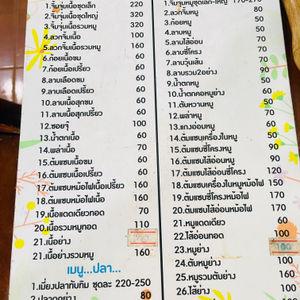 1.จิ้มจุ่มเนื้อชุดเล็ก 220
2.จิ้มจุ่มเนื้อชุดใหญ่ 320
3.จิ้มจุ่มเนื้อรวมหมู
4.ลวกจิ้มเนื้อ 100
5.ลวกจิ้มเนื้อรวมหมู 160
6.ก้อยเนื้อขม 60
7.ก้อยเนื้อเปรี้ยว 60
8.ลาบเลือดขม 60
9.ลาบเลือดเปรี้ยว 60
10.ลาบเนื้อสุกขม 60
11.ลาบเนื้อสุกเปรี้ยว 60
12.ซอยจุ๊ 100
13.น้ำตกเนื้อ 60
14.พล่าเนื้อ 70
15.ต้มแซบเนื้อขม 60
16.ต้มแซบเนื้อเปรี้ยว 60
17.ต้มแซบหม้อไฟเนื้อขม 160
18.ต้มแซบหม้อไฟเนื้อเปรี้ยว 160
19.เนื้อแดดเดียวทอด 70
20.เนื้อรวมหมูทอด 110
21.เนื้อย่าง
21.เนื้อย่างรวมหมู
เมนู...ปลา...
1.เมี่ยงปลาทับทิม ชุดละ 220-250
2.ปลาดุกย่าง 80
2.ลวกจิ้มหมู 80
3.ก้อยหมู 50
4.ลาบหมู 50
5.ลาบไส้อ่อน
6.ลาบซี่โครง
7.ลาบวุ้นเส้น
8.ลาบรวม2อย่าง
9.น้ำตกหมู
10.น้ำตกคอหมูย่าง
11.ตับหวานหมู
12.พล่าหมู
13.แกงอ่อมหมู 50
14.ต้มแซบเครื่องในหมู 50
15.ต้มแซบซี่โครงหมู
16.ต้มแซบไส้อ่อนหมู
17.ต้มแซบซี่โครงหม้อไฟ 150
18.ต้มแซบเครื่องในหมูหม้อไฟ 150
19.ต้มแซบไส้อ่อนหม้อไฟ 170
20.ต้มแซบรวมหมูหม้อไฟ 170
21.หมูแดดเดียว 60
22.ไส้อ่อนทอด 100
23.หมูย่าง 100
24.ตับหมูย่าง
25.หมูรวมตับย่าง 160
26.ไส้ย่าง 100